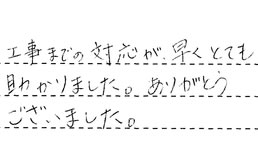 工事までの対応が、早くとても
助かりました。ありがとう
ございました。